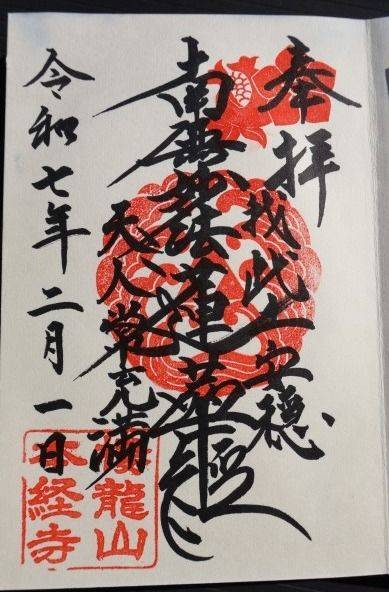 奉拝
我此土安穏
南無妙法蓮華経
天人常充満
令和七年二月一日
龍山
本経寺